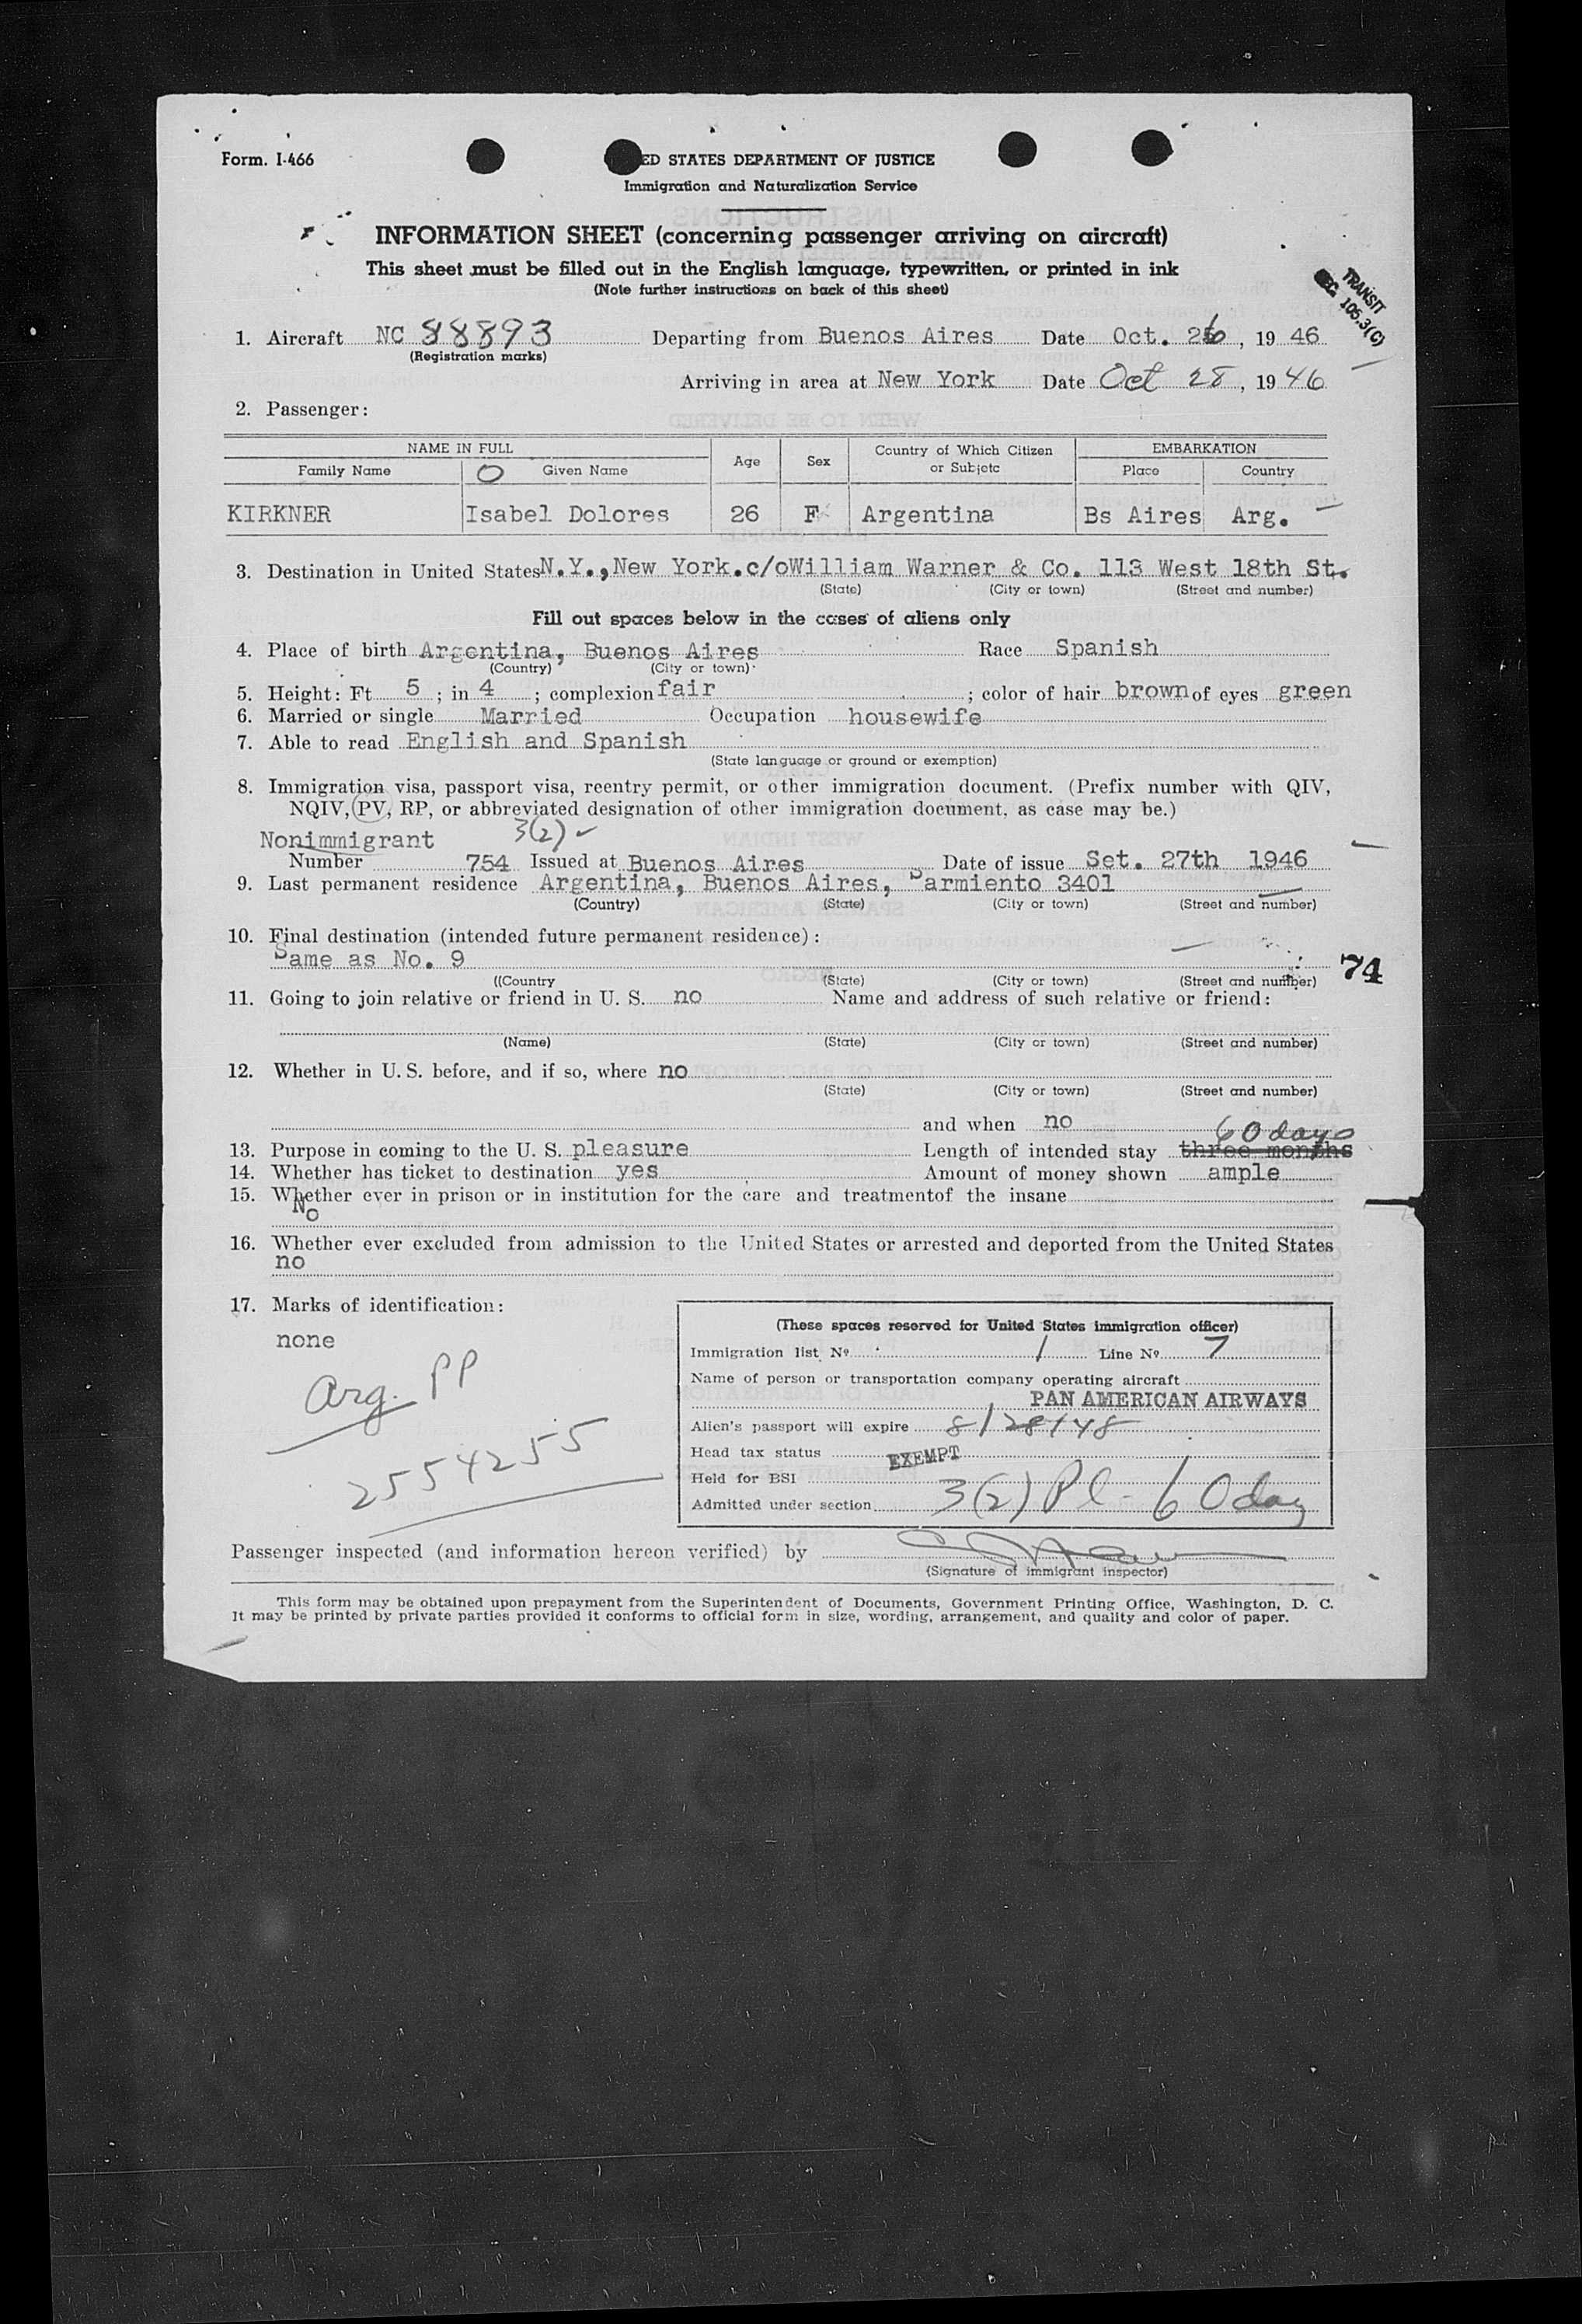 Form. I-466
ED STATES DEPARTMENT OF JUSTICE
Immigration and Naturalization Service
INFORMATION SHEET (concerning passenger arriving on aircraft)
This sheet must be filled out in the English language, typewritten, or printed in ink
(Note further instructions on back of this sheet)
TRANSIT
SEC. 105.3(C)
1. Aircraft NC 88893 Departing from Buenos Aires Date Oct. 26, 19 46
(Registration marks)
Arriving in area at New York Date Oct 28, 19 46
2. Passenger:
NAME IN FULL Age Sex Country of Which Citizen or Subjetc EMBARKATION
Family Name Given Name Place Country
KIRKNER Isabel Dolores 26 F Argentina Bs Aires Arg.
3. Destination in United States N.Y., New York. c/o William Warner & Co. 113 West 18th St.
(State) (City or town) (Street and number)
Fill out spaces below in the cases of aliens only
4. Place of birth Argentina, Buenos Aires Race Spanish
(Country) (City or town)
5. Height: Ft 5 ; in 4 ; complexion fair ; color of hair brown of eyes green
6. Married or single Married Occupation housewife
7. Able to read English and Spanish
(State language or ground or exemption)
8. Immigration visa, passport visa, reentry permit, or other immigration document. (Prefix number with QIV,
NQIV, PV, RP, or abbreviated designation of other immigration document, as case may be.)
Nonimmigrant 3(2)
Number 754 Issued at Buenos Aires Date of issue Set. 27th 1946
9. Last permanent residence Argentina, Buenos Aires, Sarmiento 3401
(Country) (State) (City or town) (Street and number)
10. Final destination (intended future permanent residence):
Same as No. 9
74
((Country (State) (City or town) (Street and number)
11. Going to join relative or friend in U. S. no Name and address of such relative or friend:
(Name) (State) (City or town) (Street and number)
12. Whether in U. S. before, and if so, where no
(State) (City or town) (Street and number)
and when no
60 days
13. Purpose in coming to the U. S. pleasure Length of intended stay three months
14. Whether has ticket to destination yes Amount of money shown ample
15. Whether ever in prison or in institution for the care and treatmentof the insane
No
16. Whether ever excluded from admission to the United States or arrested and deported from the United States
no
17. Marks of identification:
none
Arg. PP
2554255
(These spaces reserved for United States immigration officer)
Immigration list Nº 1 Line Nº 7
Name of person or transportation company operating aircraft
PAN AMERICAN AIRWAYS
Alien's passport will expire 8/28/48
Head tax status EXEMPT
Held for BSI
Admitted under section 3(2) Pl - 60 day
Passenger inspected (and information hereon verified) by
(Signature of immigrant inspector)
This form may be obtained upon prepayment from the Superintendent of Documents, Government Printing Office, Washington, D. C.
It may be printed by private parties provided it conforms to official form in size, wording, arrangement, and quality and color of paper.